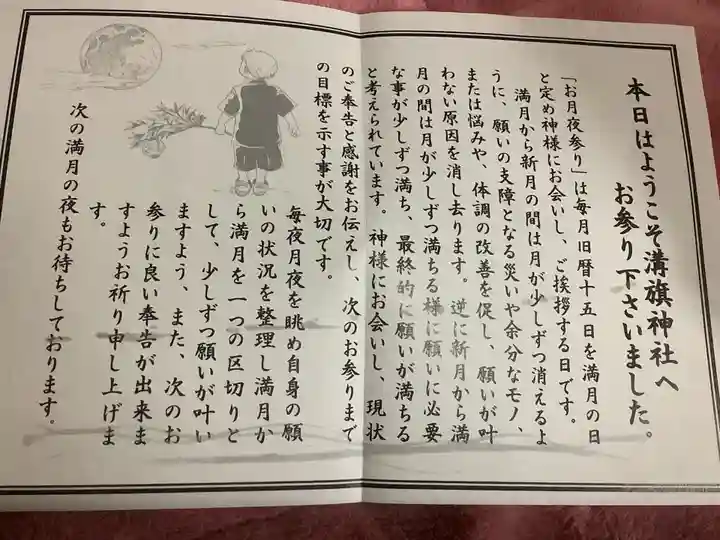 本日はようこそ溝旗神社へ
お参り下さいました。
「お月夜参り」は毎月旧暦十五日を満月の日
と定め神様にお会いし、ご挨拶する日です。
満月から新月の間は月が少しずつ消えるよ
うに、願いの支障となる災いや余分なモノ、
または悩みや、体調の改善を促し、願いが叶
わない原因を消し去ります。逆に新月から満
月の間は月が少しずつ満ちる様に願いに必要
な事が少しずつ満ち、最終的に願いが満ちる
と考えられています。神様にお会いし、現状
のご奉告と感謝をお伝えし、次のお参りまで
の目標を示す事が大切です。
毎夜月夜を眺め自身の願
いの状況を整理し満月か
ら満月を一つの区切りと
して、少しずつ願いが叶い
ますよう、また、次のお
参りに良い奉告が出来ま
すようお祈り申し上げま
す。
次の満月の夜もお待ちしております。